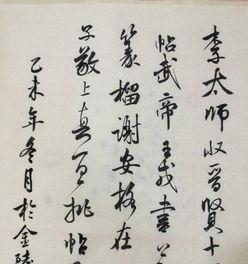 李太师收晋贤十
帖武帝王戎书
篆榴谢安格在
子敬上真百挑帖
乙未年冬月於金陵